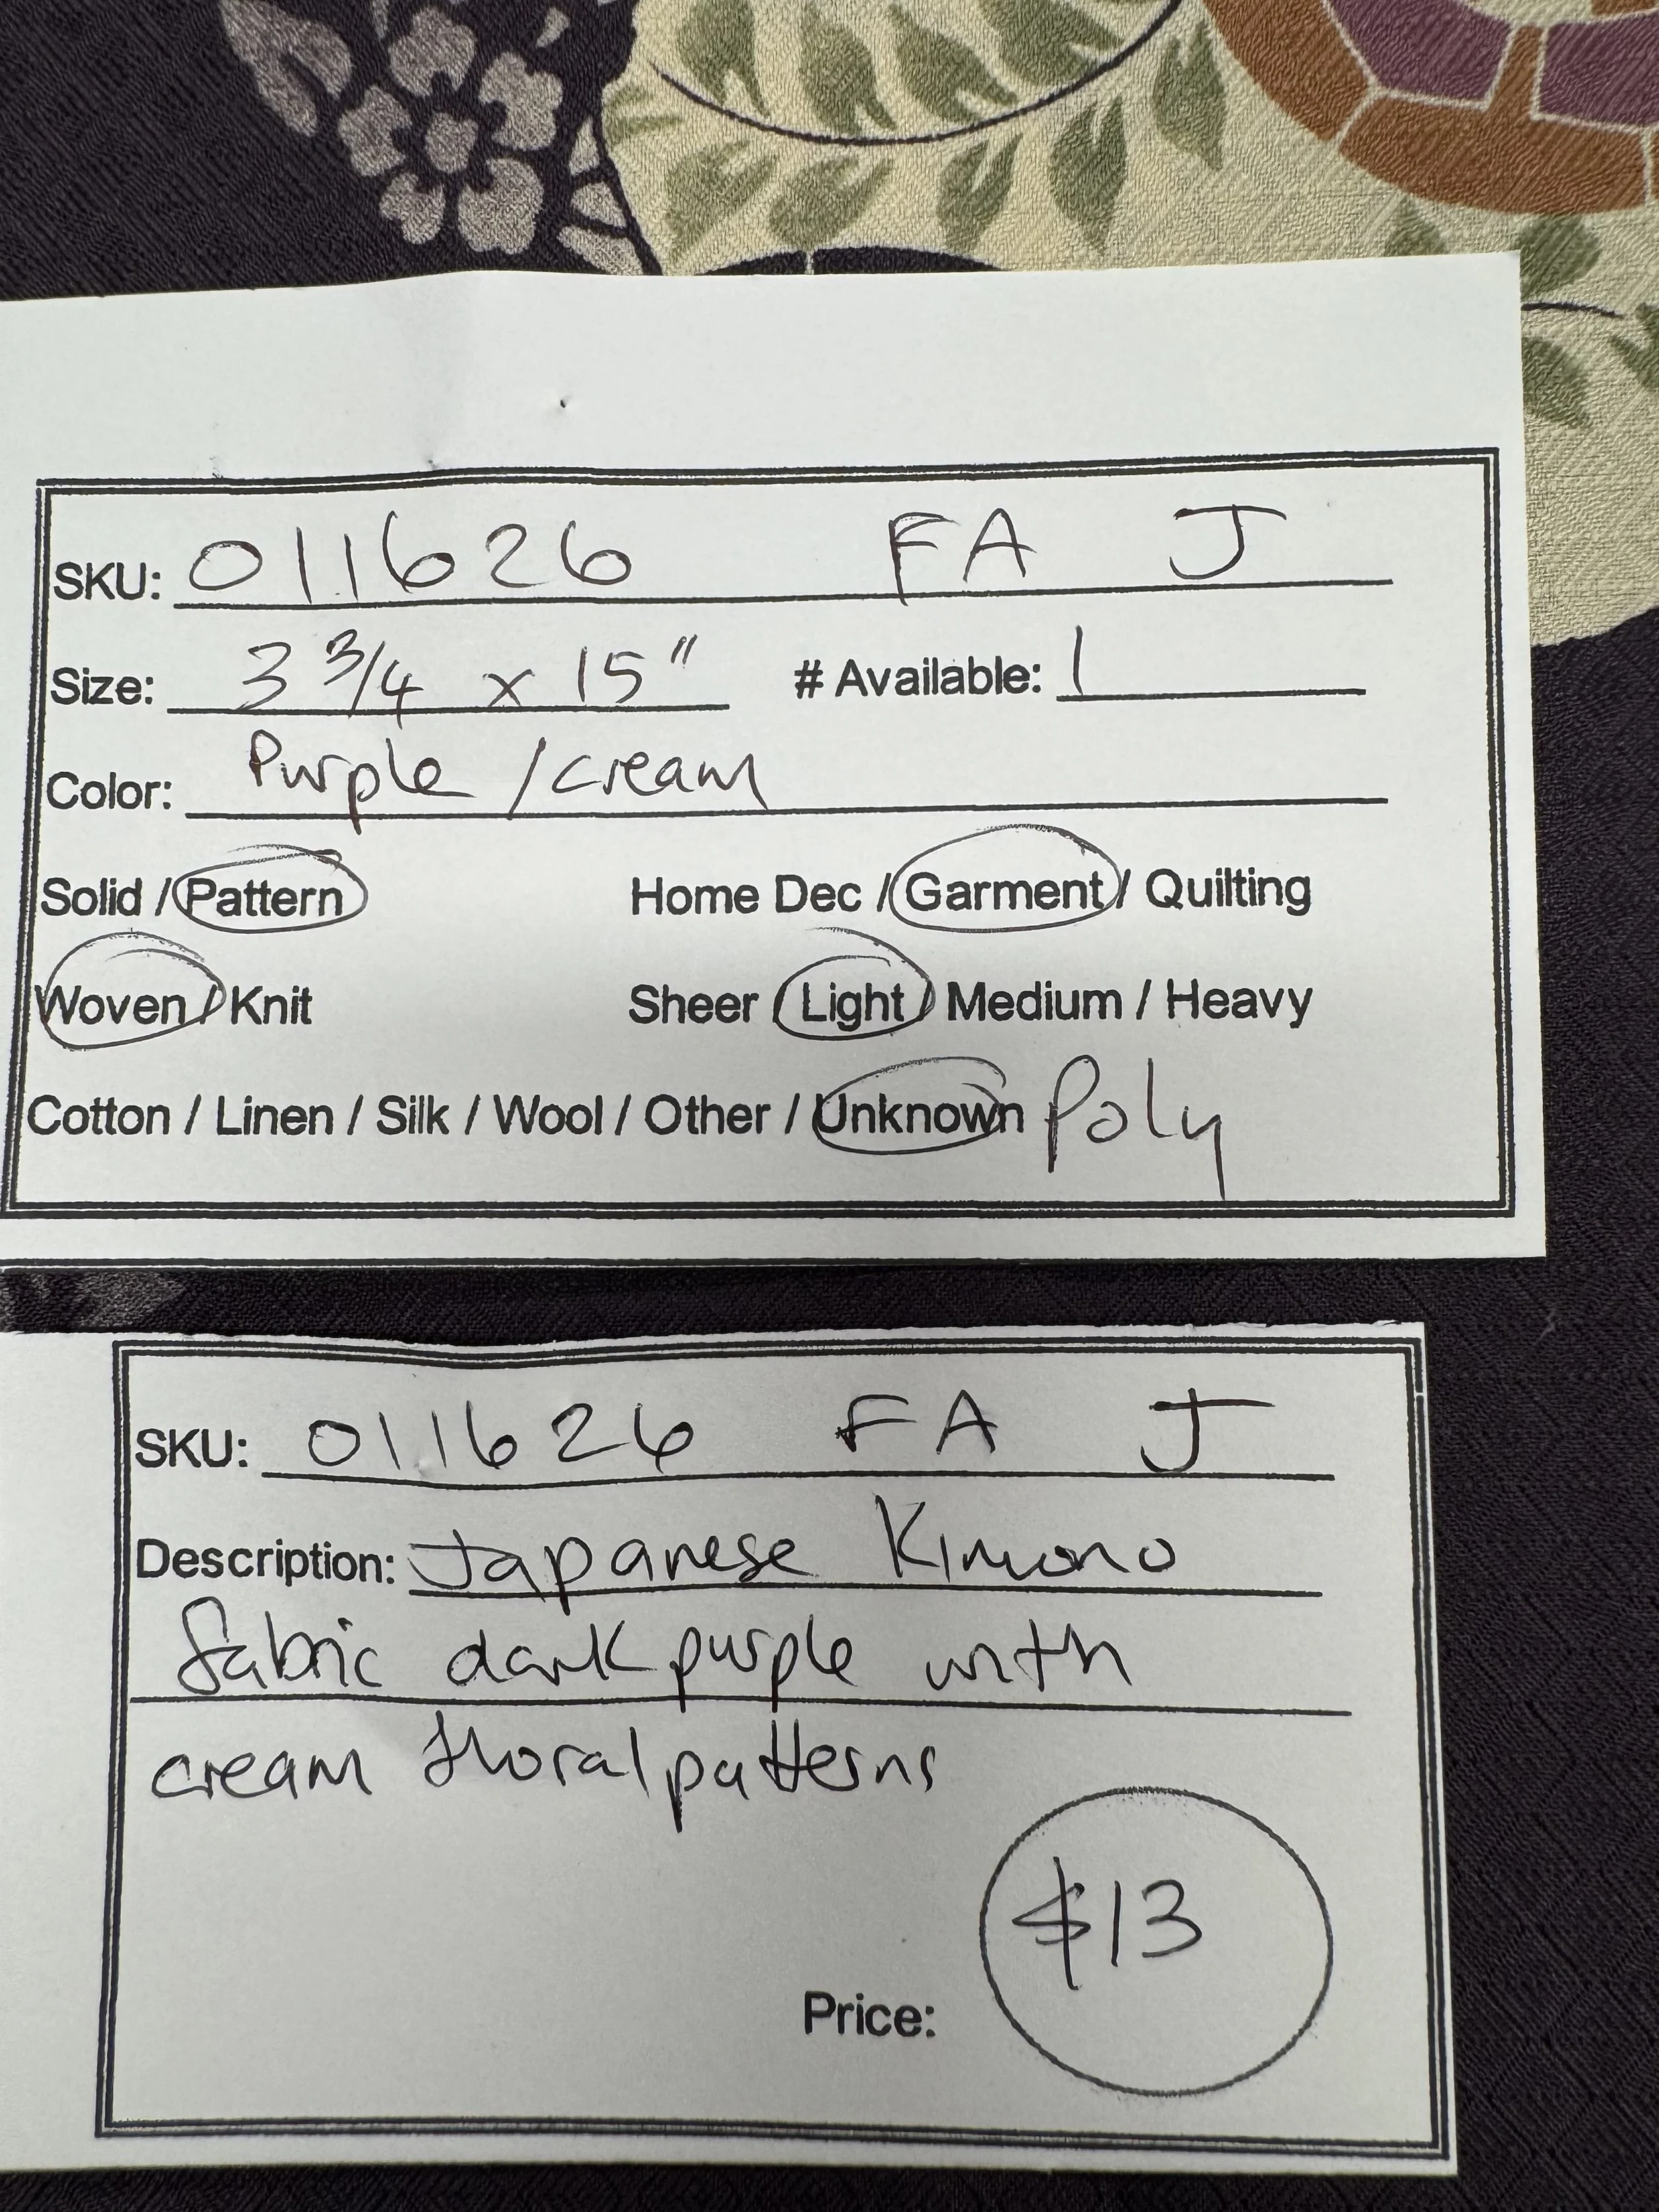 SKU: 011626 FA J
Size: 3 3/4 x 15" # Available: 1
Color: Purple / cream
Solid / Pattern Home Dec / Garment / Quilting
Woven / Knit Sheer / Light / Medium / Heavy
Cotton / Linen / Silk / Wool / Other / Unknown Poly
SKU: 011626 FA J
Description: Japanese Kimono
fabric dark purple with
cream floral patterns
$13
Price: